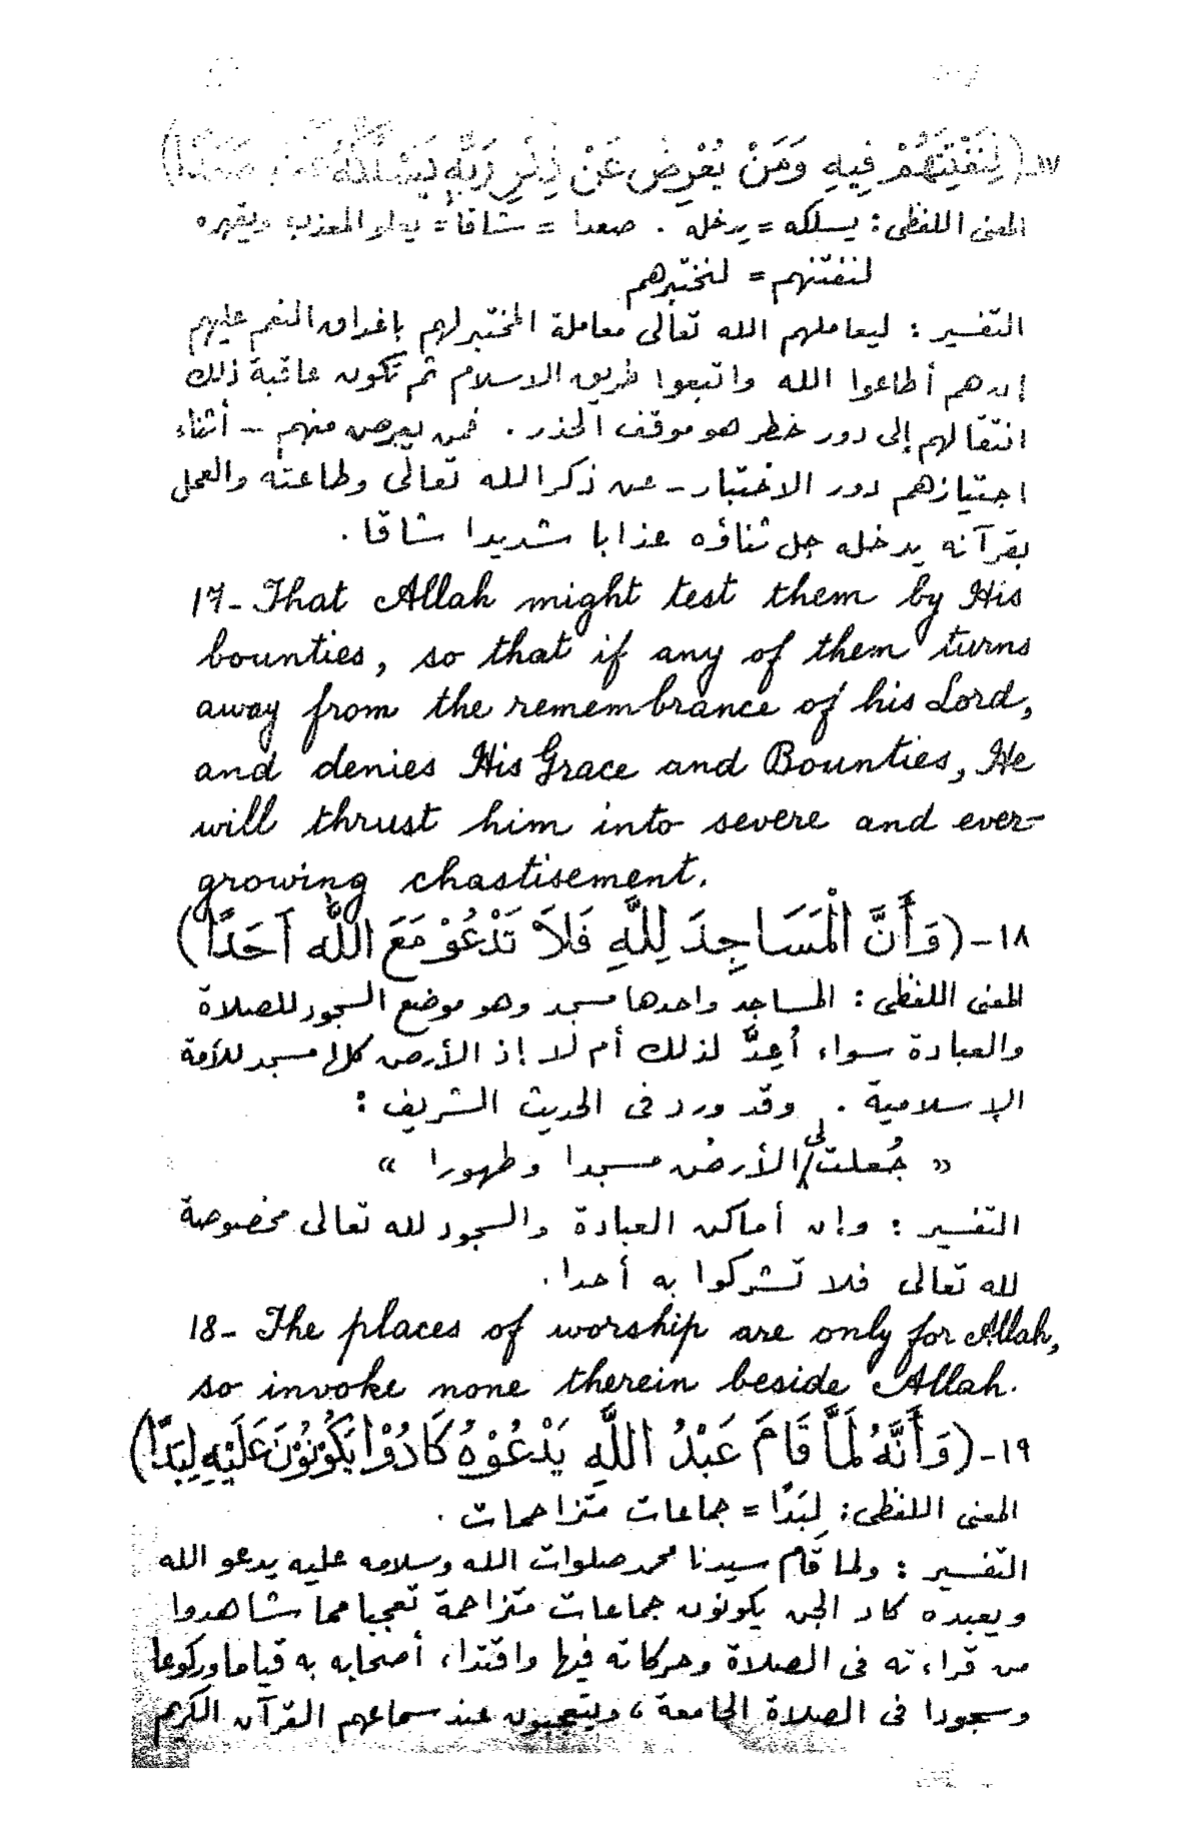 ١٧ـ (لِنَفْتِنَهُمْ فِيهِ وَمَنْ يُعْرِضْ عَنْ ذِكْرِ رَبِّهِ يَسْلُكْهُ عَذَابًا صَعَدًا)
المعنى اللفظى : يسلكه = يدخله . صعدا = شاقا = يعلو المعذب ويقهره
لنفتنهم = لنختبرهم
التفسير : ليعاملهم الله تعالى معاملة المختبر لهم بإغداق النعم عليهم
إن هم أطاعوا الله واتبعوا طريق الاسلام ثم تكون عاقبة ذلك
انتقالهم إلى دور خطر هو موقف الحذر . فمن يعرض منهم – أثناء
اجتيازهم دور الاختبار – عن ذكر الله تعالى وطاعته والعمل
بقرآنه يدخله جل ثناؤه عذابا شديدا شاقا .
17- That Allah might test them by His
bounties, so that if any of them turns
away from the remembrance of his Lord,
and denies His Grace and Bounties, He
will thrust him into severe and ever-
growing chastisement.
١٨ – (وَأَنَّ الْمَسَاجِدَ لِلَّهِ فَلاَ تَدْعُوْ مَعَ اللَّهِ أَحَدًا)
المعنى اللفظى : المساجد واحدها مسجد وهو موضع السجود للصلاة
والعبادة سواء أُعِدَّ لذلك أم لا إذ الأرض كلها مسجد للأمة
الإسلامية . وقد ورد فى الحديث الشريف :
« جُعلت لى الأرض مسجدا وطهورا »
التفسير : وإن أماكن العبادة والسجود لله تعالى مخصوصة
لله تعالى فلا تشركوا به أحدا .
18- The places of worship are only for Allah,
so invoke none therein beside Allah.
١٩ – (وَأَنَّهُ لَمَّا قَامَ عَبْدُ اللَّهِ يَدْعُوْهُ كَادُوْا يَكُوْنُوْنَ عَلَيْهِ لِبَدًا)
المعنى اللفظى : لِبَدًا = جماعات متزاحمات .
التفسير : ولما قام سيدنا محمد صلوات الله وسلامه عليه يدعو الله
ويعبده كاد الجن يكونون جماعات متزاحمة تعجبا مما شاهدوا
من قراءته فى الصلاة وحركاته فيها واقتداء أصحابه به قياما وركوعا
وسجودا فى الصلاة الجامعة ، ويتعجبون عند سماعهم القرآن الكريم